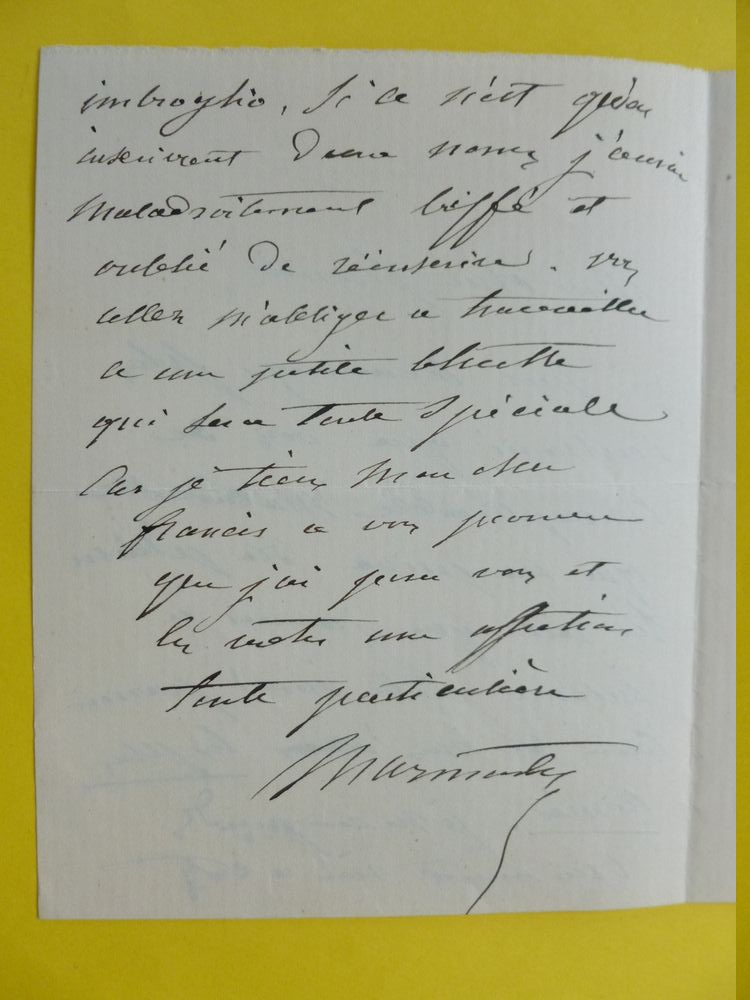 imbroglio, Si ce n'est qu'en
inscrivant deux noms j'aurai
maladroitement biffé et
oublié de réinscrire. vs
allez m'obliger a travailler
a une petite bluette
qui sera toute Spéciale
Car je tiens mon cher
francis a vous prouver
que j'ai pour vous et
les votres une affection
toute particulière
Marmontel